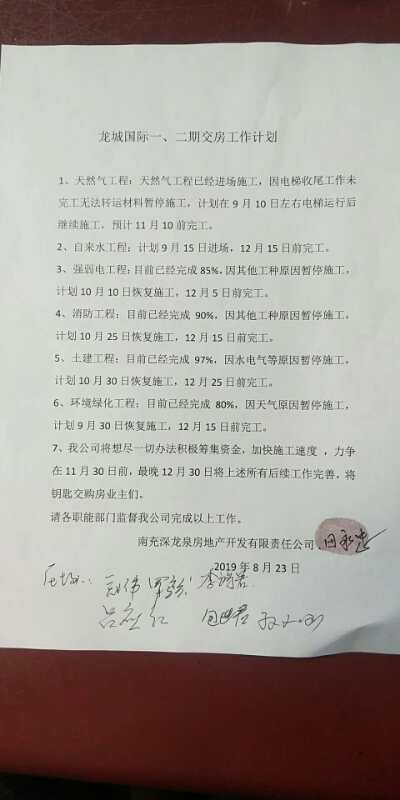 龙城国际一、二期交房工作计划
1、天然气工程：天然气工程已经进场施工，因电梯收尾工作未
完工无法转运材料暂停施工，计划在 9 月 10 日左右电梯运行后
继续施工，预计 11 月 10 前完工。
2、自来水工程：计划 9 月 15 日进场，12 月 15 日前完工。
3、强弱电工程：目前已经完成 85%，因其他工种原因暂停施工，
计划 10 月 10 日恢复施工，12 月 5 日前完工。
4、消防工程：目前已经完成 90%，因其他工种原因暂停施工，
计划 10 月 25 日恢复施工，12 月 15 日前完工。
5、土建工程：目前已经完成 97%，因水电气等原因暂停施工，
计划 10 月 30 日恢复施工，12 月 25 日前完工。
6、环境绿化工程：目前已经完成 80%，因天气原因暂停施工，
计划 9 月 30 日恢复施工，12 月 15 日前完工。
7、我公司将想尽一切办法积极筹集资金，加快施工速度 ，力争
在 11 月 30 日前，最晚 12 月 30 日将上述所有后续工作完善，将
钥匙交购房业主们。
请各职能部门监督我公司完成以上工作。
南充深龙泉房地产开发有限责任公司
2019 年 8 月 23 日